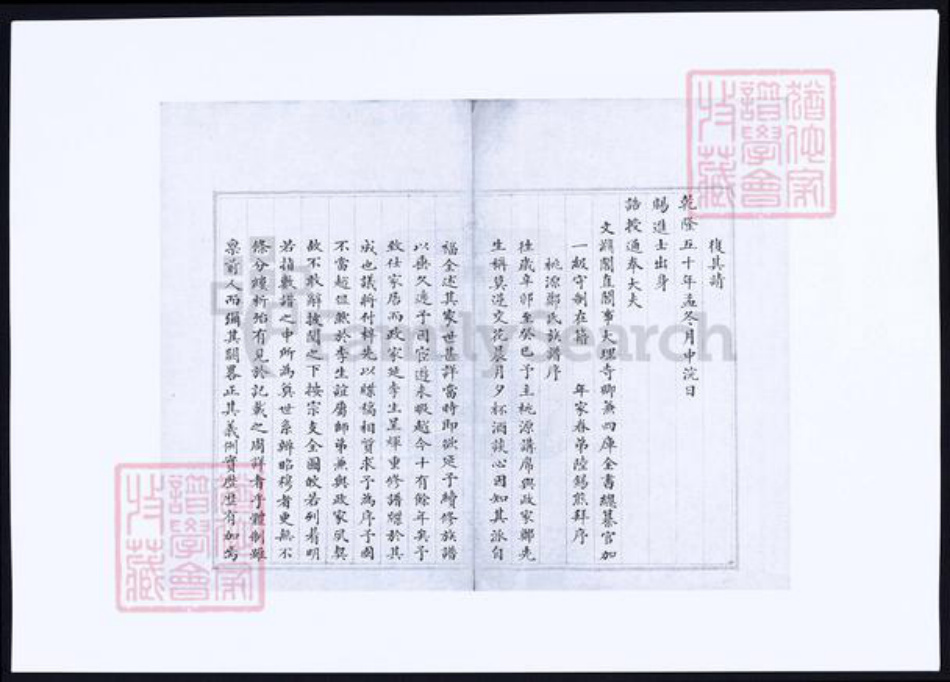 復其請
乾隆五十年孟冬月中浣日
賜進士出身
誥授通奉大夫
文淵閣直閣事大理寺卿兼四庫全書總纂官加
一級守制在籍 年家眷弟陸錫熊拜序
桃源鄭氏族譜序
往歲辛卯至癸巳予主桃源講席與政家鄭先
生稱莫逆交花晨月夕杯酒談心因知其派自
福全述其家世甚詳當時即欲延予續修族譜
以垂久遠予因宦遊未暇越今十有餘年矣予
致仕家居而政家延李生呈輝重修譜牒於其
成也議將付梓先以牒稿相質求予為序予固
不當越俎然於李生誼屬師弟兼與政家夙契
故不敢辭披閱之下按宗支全圖皎若列眉明
若指數譜之中所為奠世系辨昭穆者更無不
條分縷析殆有見於記載之周詳者乎體制雖
稟前人而彌其闕畧正其義例實歷歷有加焉
猶他家
譜學會
收藏
FamilySearch
猶他家
譜學會
收藏